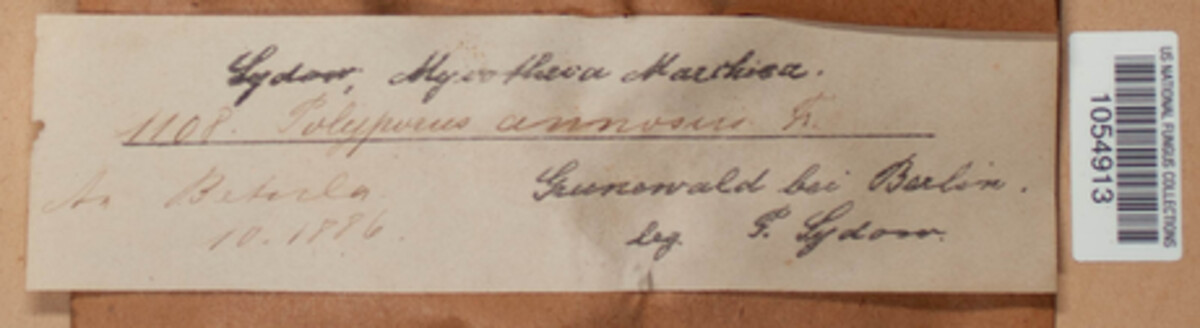 Sydow, Mycotheca Marchica.
1108. Polyporus annosus Fr.
An Betula
10. 1886.
Grunewald bei Berlin.
leg. P. Sydow.
US NATIONAL FUNGUS COLLECTIONS
1054913